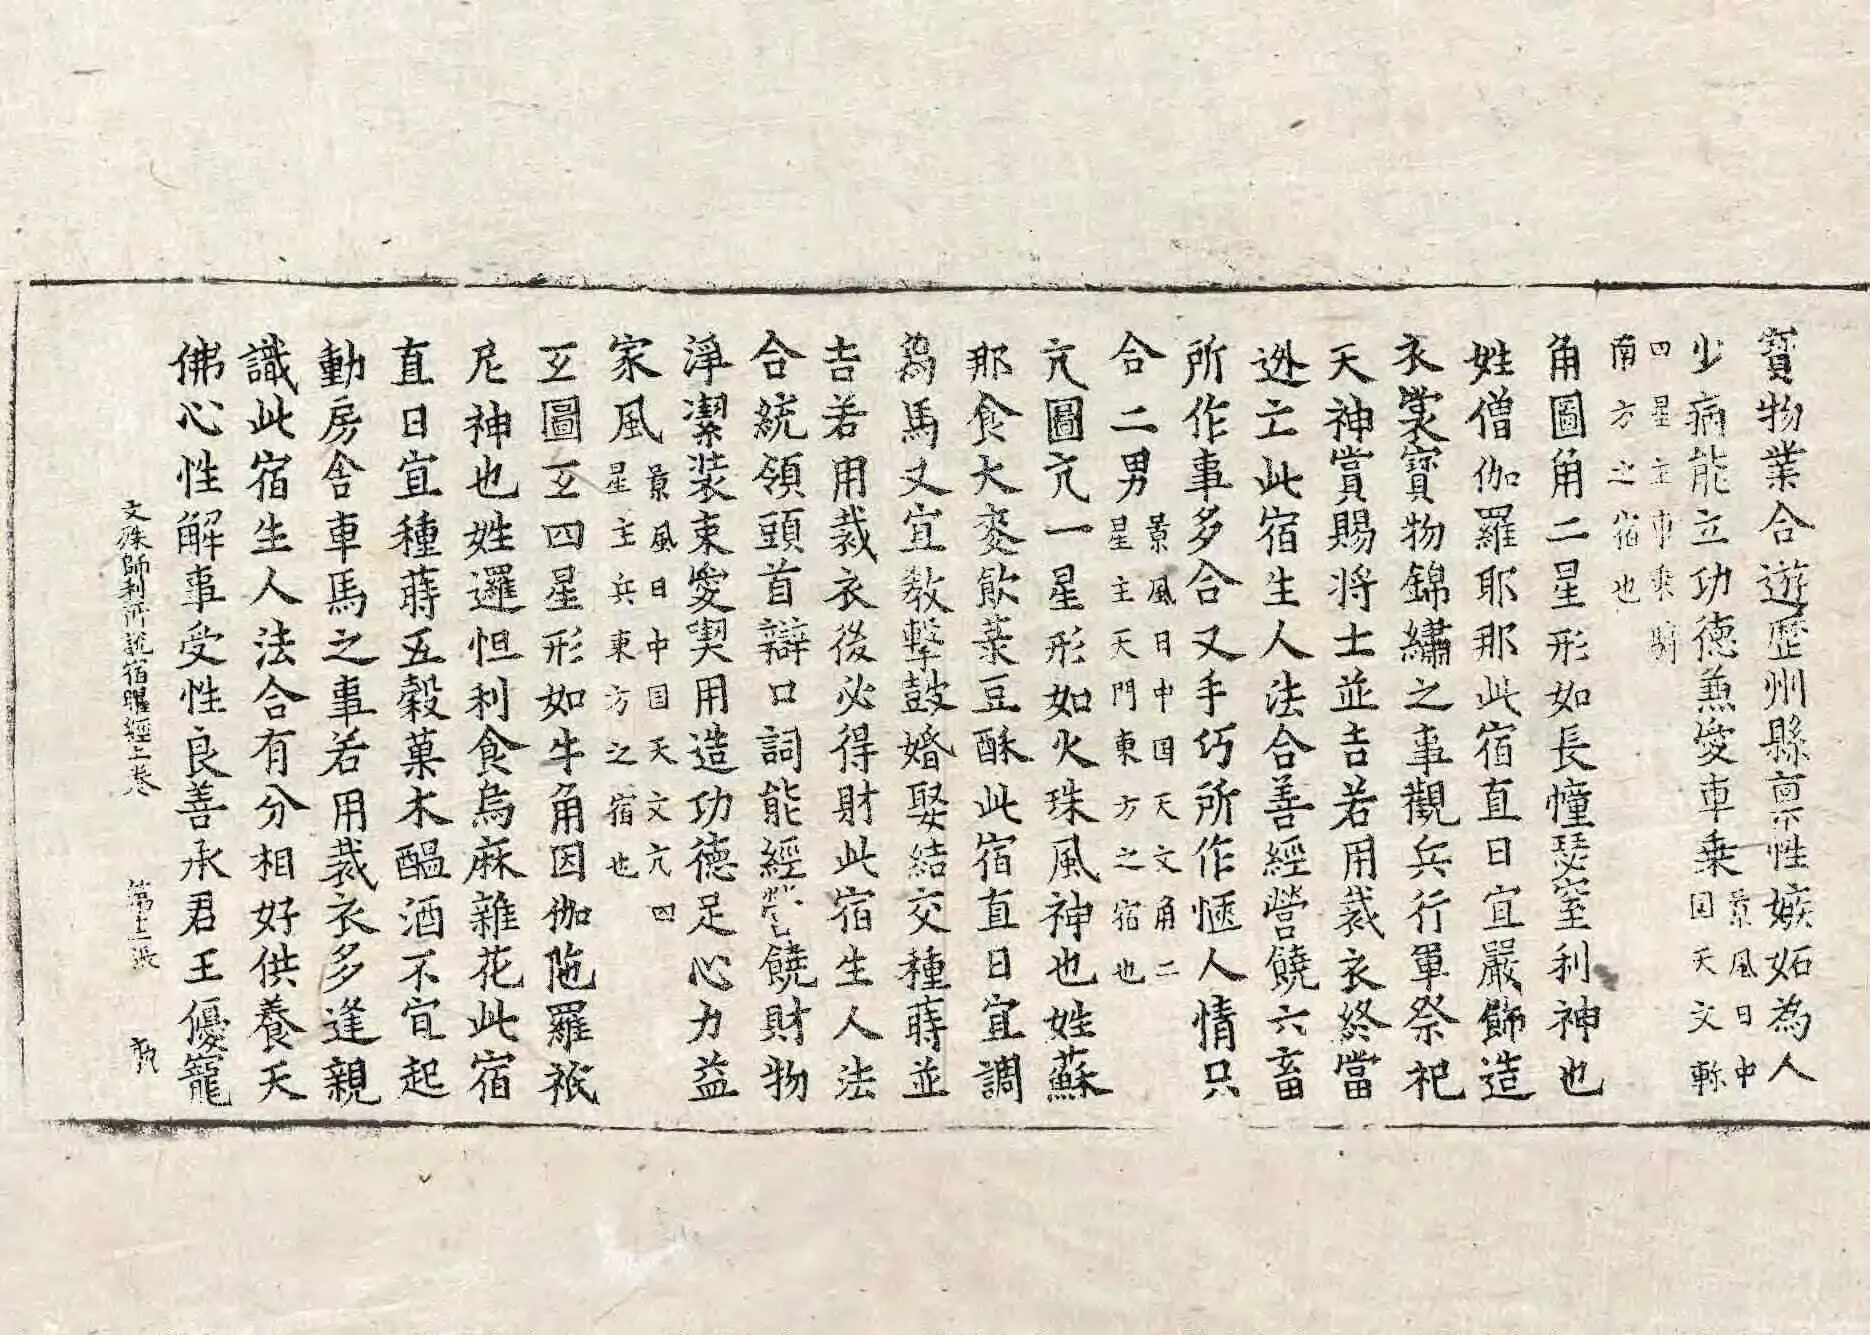 寶物業合遊歷州縣禀性嫉妬為人
少病能立功德兼愛車乗景風日中国天文軫
四星主車乘騎南方之宿也
角圖角二星形如長幢瑟室利神也
姓僧伽羅耶那此宿直日宜嚴飾造
衣裳寶物錦繡之事觀兵行軍祭祀
天神賞賜将士並吉若用裁衣終當
迯亡此宿生人法合善經營饒六畜
所作事多合又手巧所作愜人情只
合二男景風日中国天文角二星主天門東方之宿也
亢圖亢一星形如火珠風神也姓蘇
那食大麥飲菉豆酥此宿直日宜調
為馬又宜教擊鼓婚娶結交種蒔並
吉若用裁衣後必得財此宿生人法
合統領頭首辯口詞能經營饒財物
淨潔裝束愛喫用造功德足心力益
家風景風日中国天文亢四星主兵東方之宿也
互圖互四星形如牛角因伽陁羅祇
尼神也姓邏怛利食烏麻雜花此宿
直日宜種蒔五穀菓木醖酒不宜起
動房舎車馬之事若用裁衣多逢親
識此宿生人法合有分相好供養天
佛心性解事受性良善承君王優寵
文殊師利所說宿曜經上卷 第十二張